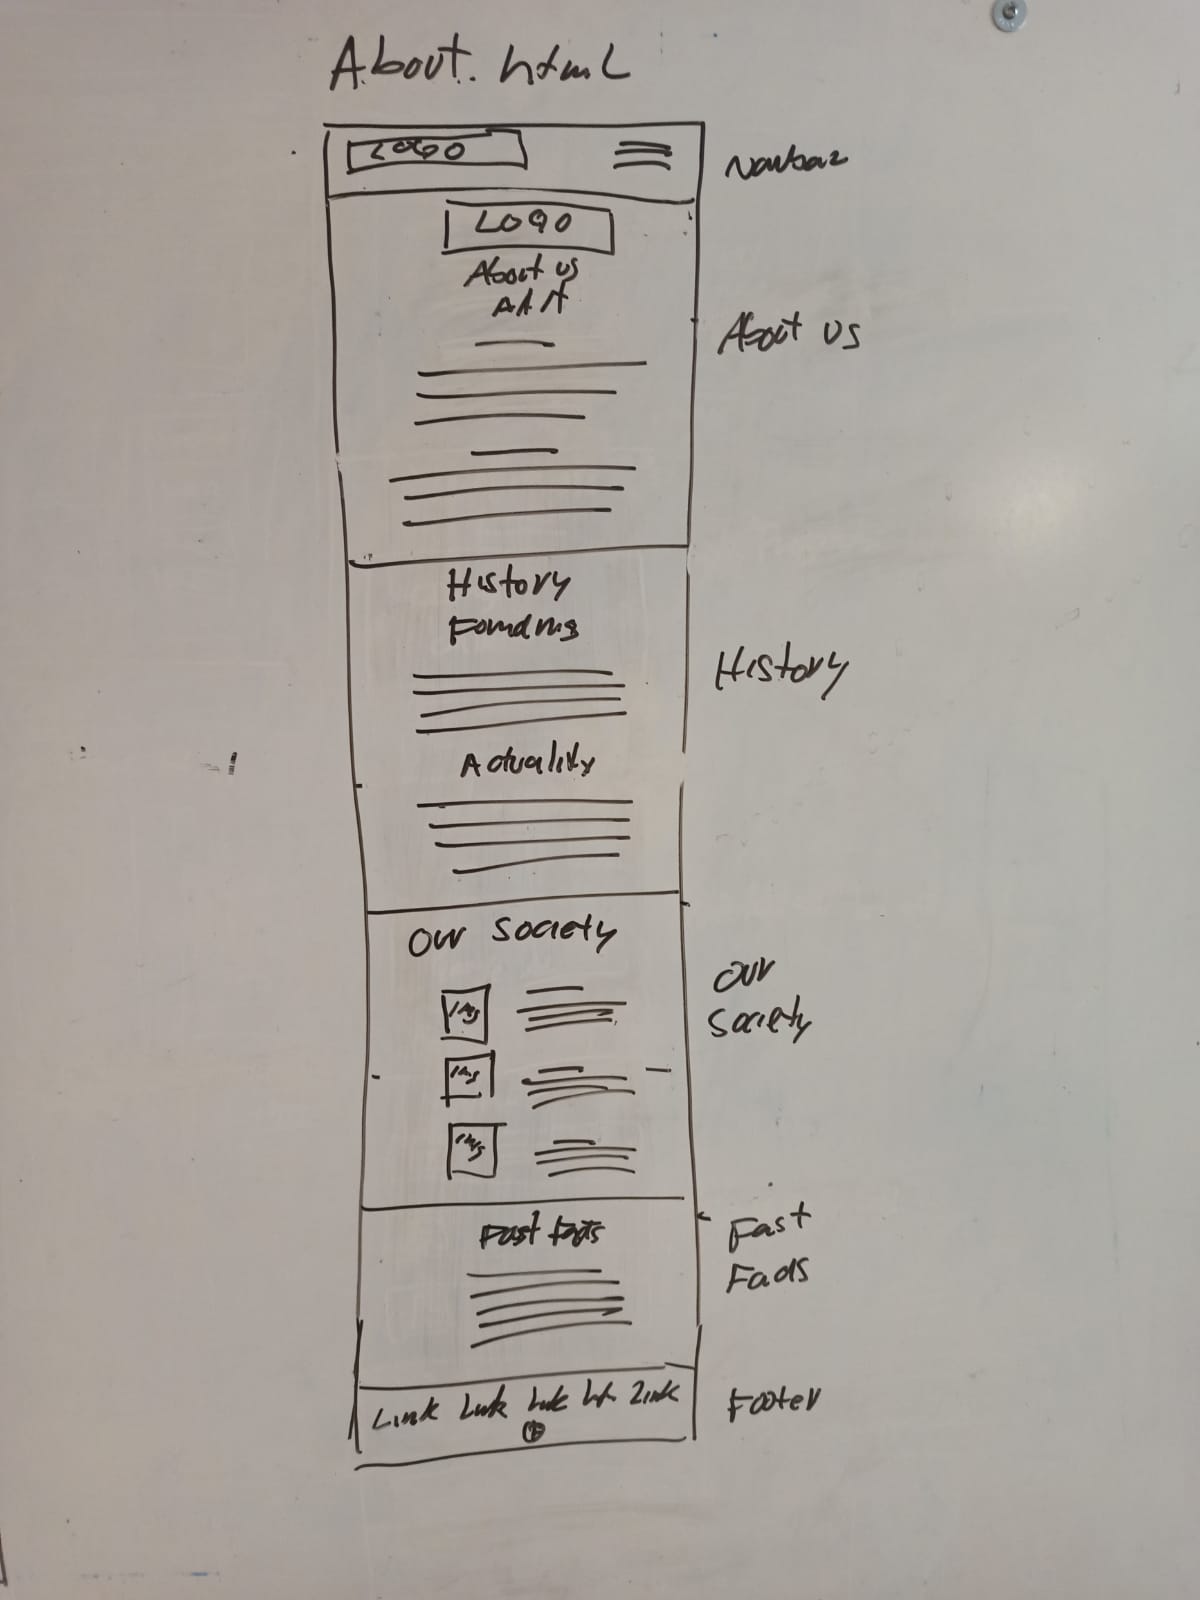 About.html
LOGO
Navbar
LOGO
About us
About us
History
Founding
History
Actuality
Our Society
Our
Society
Img
Img
Img
Fast facts
Fast
Facts
Link Link Link Link Link
Footer